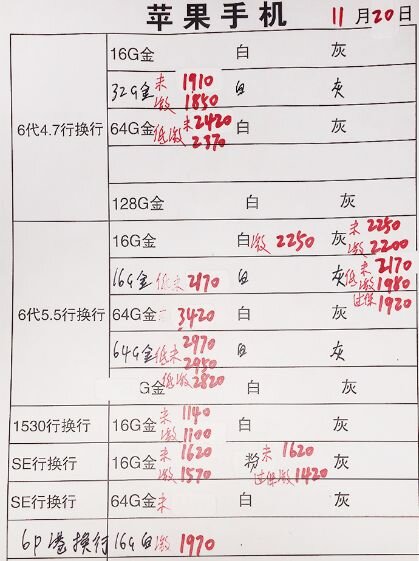 苹果手机 11月20日
16G金 白 灰
32G金 未 1910 白 灰
激 1850
6代4.7行换行 64G金 未 2420 白 灰
低激 2370
128G金 白 灰
16G金 白 激 2250 灰 未 2250
激 2200
16G金 低未 2170 白 灰 未 2170
低激 1980
过保 1920
6代5.5行换行 64G金 3420 白 灰
64G金 低未 2970 白 灰
2950
G金 低激 2820 白 灰
1530行换行 16G金 未 1140 白 灰
激 1100
SE行换行 16G金 未 1620 粉 未 1620 灰
激 1570 过保激 1420
SE行换行 64G金 未 白 灰
6p港换行 16G白 激 1970